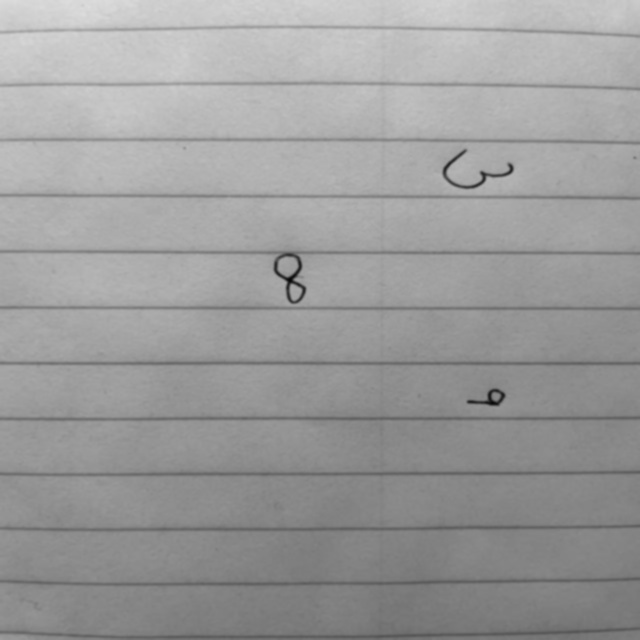 3
8
9